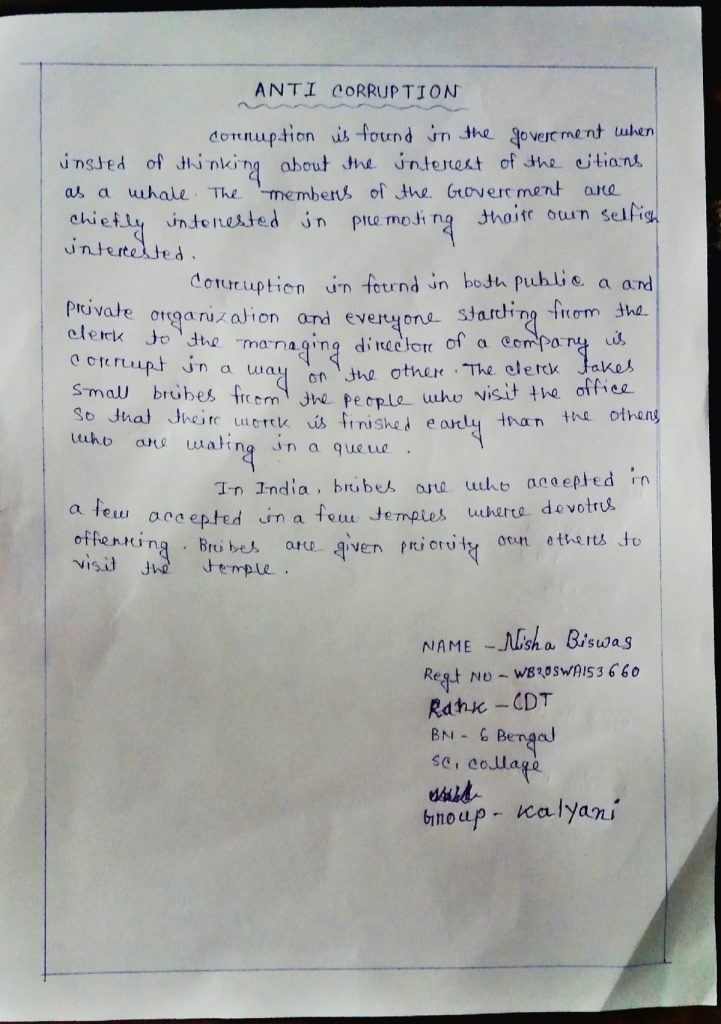 ANTI CORRUPTION
Corruption is found in the goverment when
insted of thinking about the interest of the citians
as a whale. The members of the Goverment are
chiefly interested in premoting thair own selfish
interested.
Corruption in found in both public a and
private organization and everyone starting from the
clerk to the managing director of a company is
corrupt in a way on the other. The clerk takes
small bribes from the people who visit the office
so that their work is finished early than the others
who are wating in a queue.
In India, bribes are who accepted in
a few accepted in a few temples where devotes
offerring. Bribes are given priority over others to
visit the temple.
NAME - Nisha Biswas
Regt NO - WB20SWA153660
Rank - CDT
BN - 6 Bengal
SC, collage
Group - Kalyani